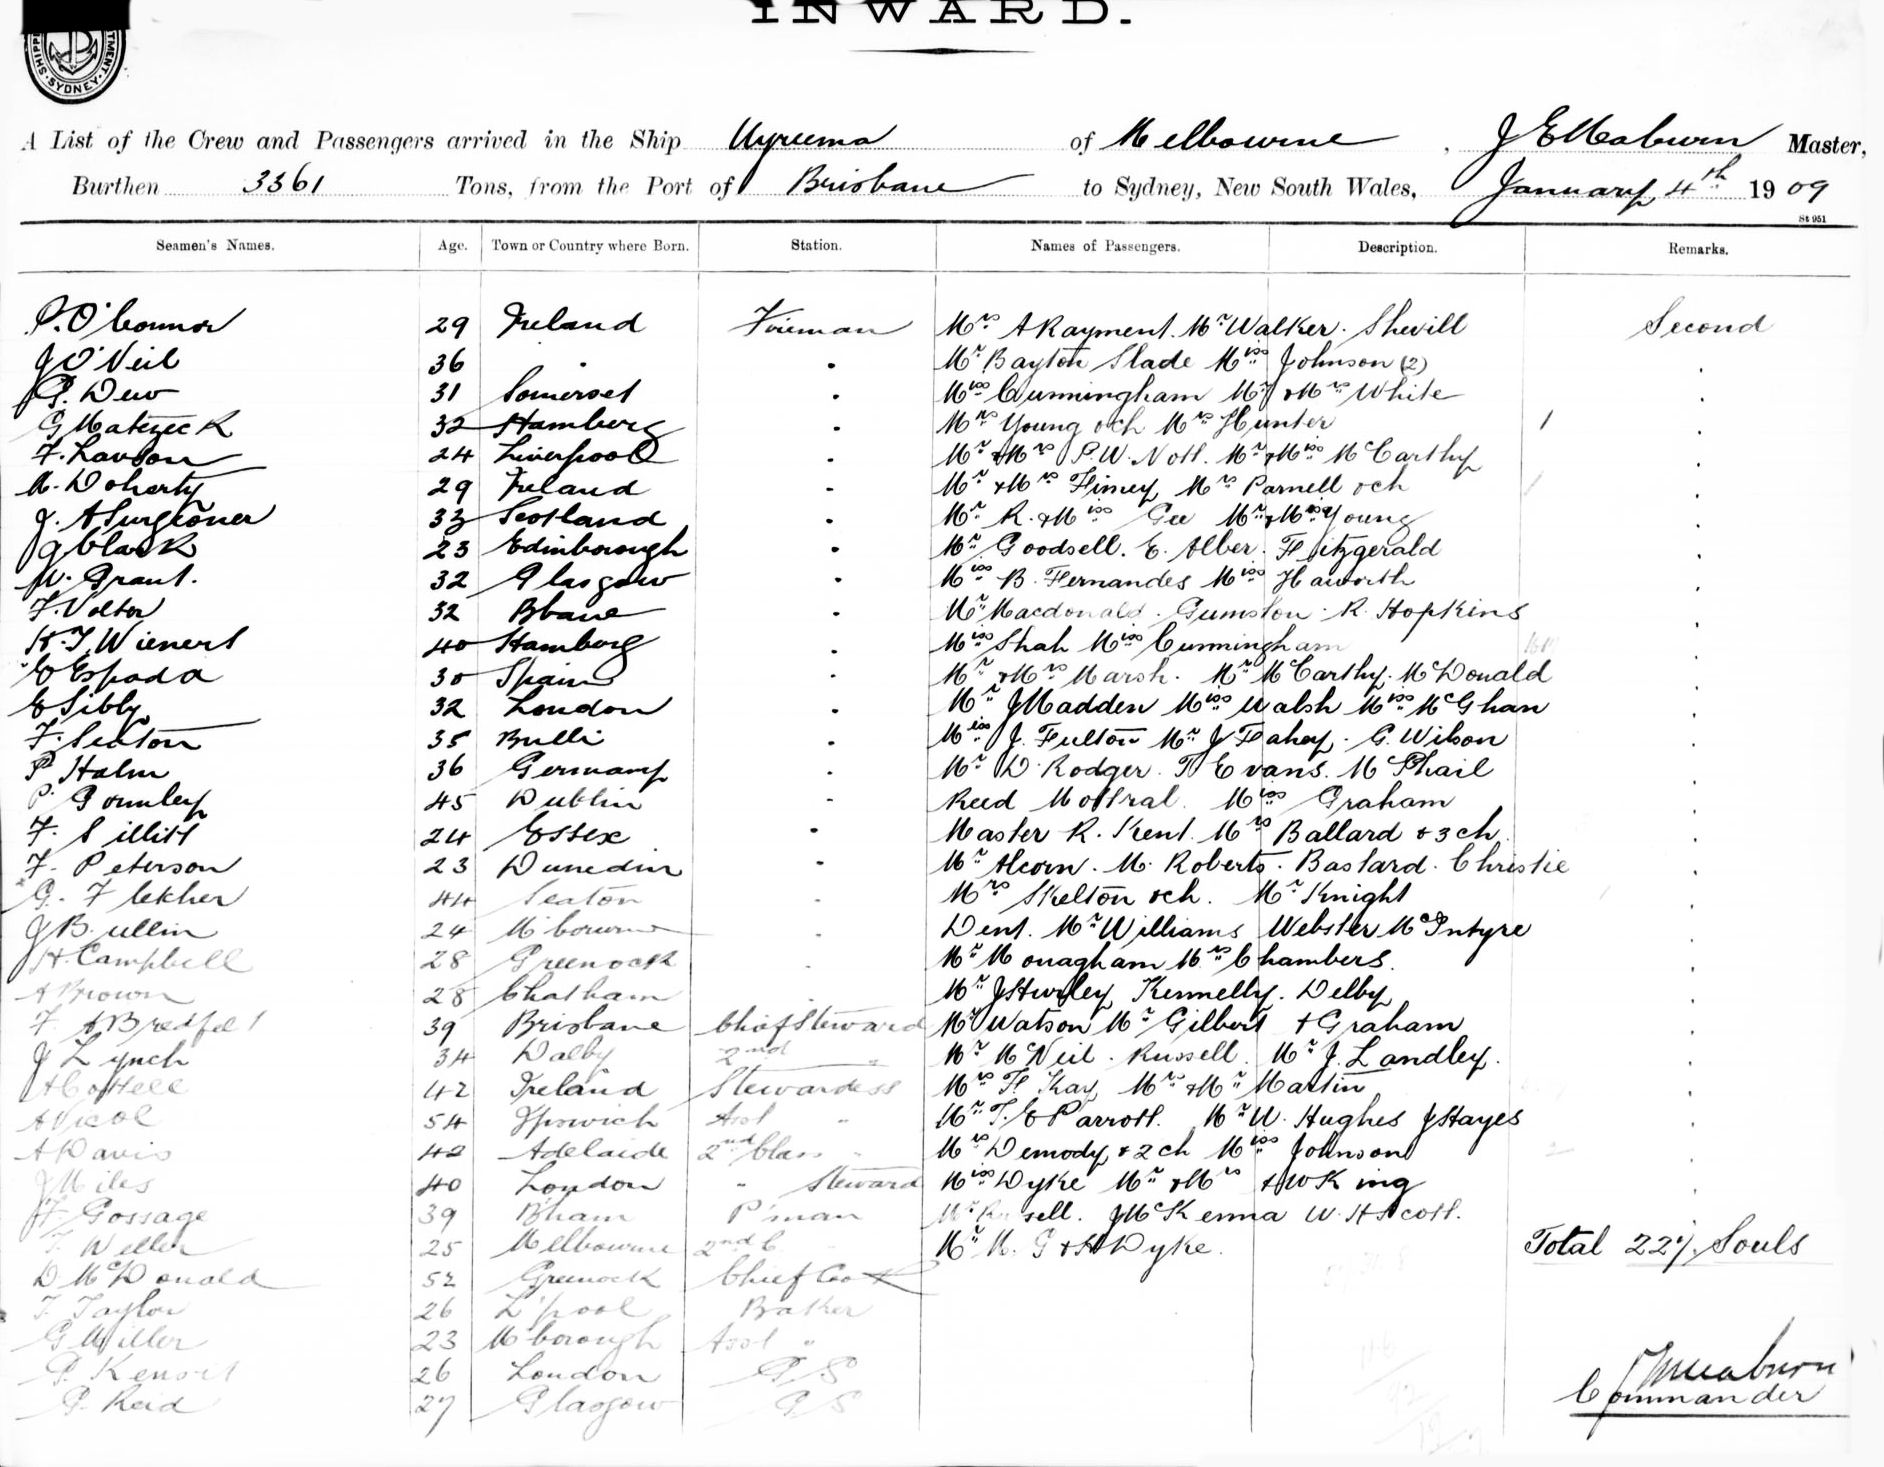 INWARD.
SHIPPING DEPARTMENT. SYDNEY
A List of the Crew and Passengers arrived in the Ship Wyreema of Melbourne, J E Meaburn Master,
Burthen 3361 Tons, from the Port of Brisbane to Sydney, New South Wales, January 4th 1909
St 951
Seamen's Names. Age. Town or Country where Born. Station. Names of Passengers. Description. Remarks.
P. O'Connor 29 Ireland Fireman Mrs A Rayment. Mr Walker. Shevill Second
J O'Neil 36 " . Mr Bayton Slade Miss Johnson (2) .
P. Dew 31 Somerset . Miss Cunningham Mr & Mrs White .
G Matezeck 32 Hamberg . Mrs Young & ch Mrs Hunter 1 .
F. Lawson 24 Liverpool . Mr & Mrs P. W. Nott. Mr & Miss McCarthy .
M. Doherty 29 Ireland . Mr & Mrs Finney Mrs Parnell & ch 1 .
J. A Surgeoner 33 Scotland . Mr R. & Miss Gee Mr & Miss Young .
G Clark 23 Edinborough . Mr Goodsell. E. Alber. Fitzgerald .
W. Grant. 32 Glasgow . Miss B. Fernandes Miss Haworth .
F. Volter 32 Bbane . Mr Macdonald. Gumston. R. Hopkins .
K. F. Wienert 40 Hamborg . Miss Shah Miss Cunningham .
E Espada 30 Spain . Mr & Mrs Marsh. Mr McCarthy. McDonald .
E Sibby 32 London . Mr J Madden Miss Walsh Miss McGhan .
F. Seaton 35 Bulli . Miss J. Fulton Mr J Fahey. G. Wilson .
P Halm 36 Germany . Mr D. Rodger. T Evans. McPhail .
P. Gormley 45 Dublin . Reed Mottral. Miss Graham .
F. Sillitt 24 Essex . Master R. Kent. Mrs Ballard & 3 ch. .
F. Peterson 23 Dunedin . Mr Alcorn. M. Roberts. Bastard. Christie .
G. Fletcher 44 Seaton . Mrs Skelton & ch. Mr Knight .
J Bullin 24 Mbourne . Dent. Mr Williams Webster McIntyre .
H. Campbell 28 Greenock . Mr Monagham Mrs Chambers. .
A Brown 28 Chatham . Mr J Hurley Kennelly. Delby .
F. A Bredfelt 39 Brisbane Chief Steward Mr Watson Mr Gilbert & Graham .
J Lynch 34 Dalby 2nd " Mr McNeil. Russell. Mr J. Landley. .
A Cottell 42 Ireland Stewardess Mrs F. Kay Mrs & Mr Martin .
A Nicol 54 Ipswich Asst " Mr T. E Parrott. Mr W. Hughes J Hayes .
A Davis 42 Adelaide 2nd Class " Mrs Demody & 2 ch Miss Johnson .
J Miles 40 London " Steward Miss Dyke Mr & Mrs A W King .
F Gossage 39 Bham P'man Mr Russell. J McKenna W. H Scott.
T. Weller 25 Melbourne 2nd C Mr M. G & H Dyke. Total 227 Souls
D McDonald 52 Greenock Chief Cook
F Taylor 26 L'pool Baker
G Miller 23 Mborough Asst "
P. Kensit 26 London G. S
P. Reid 27 Glasgow G. S
J E Meaburn
Commander